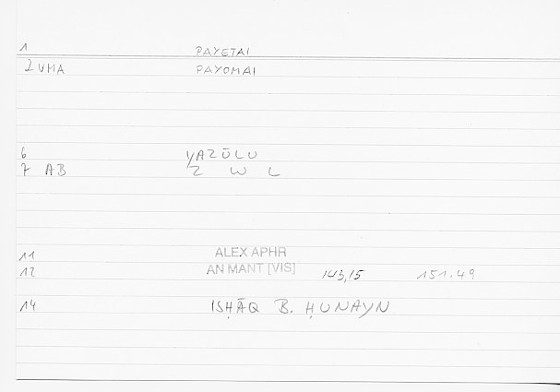 1 PAYETAI
2 VMA PAYOMAI
6 YAZŪLU
7 AB Z W L
11 ALEX APHR
12 AN MANT [VIS] 143,15 151.49
14 ISḤĀQ B. ḤUNAYN